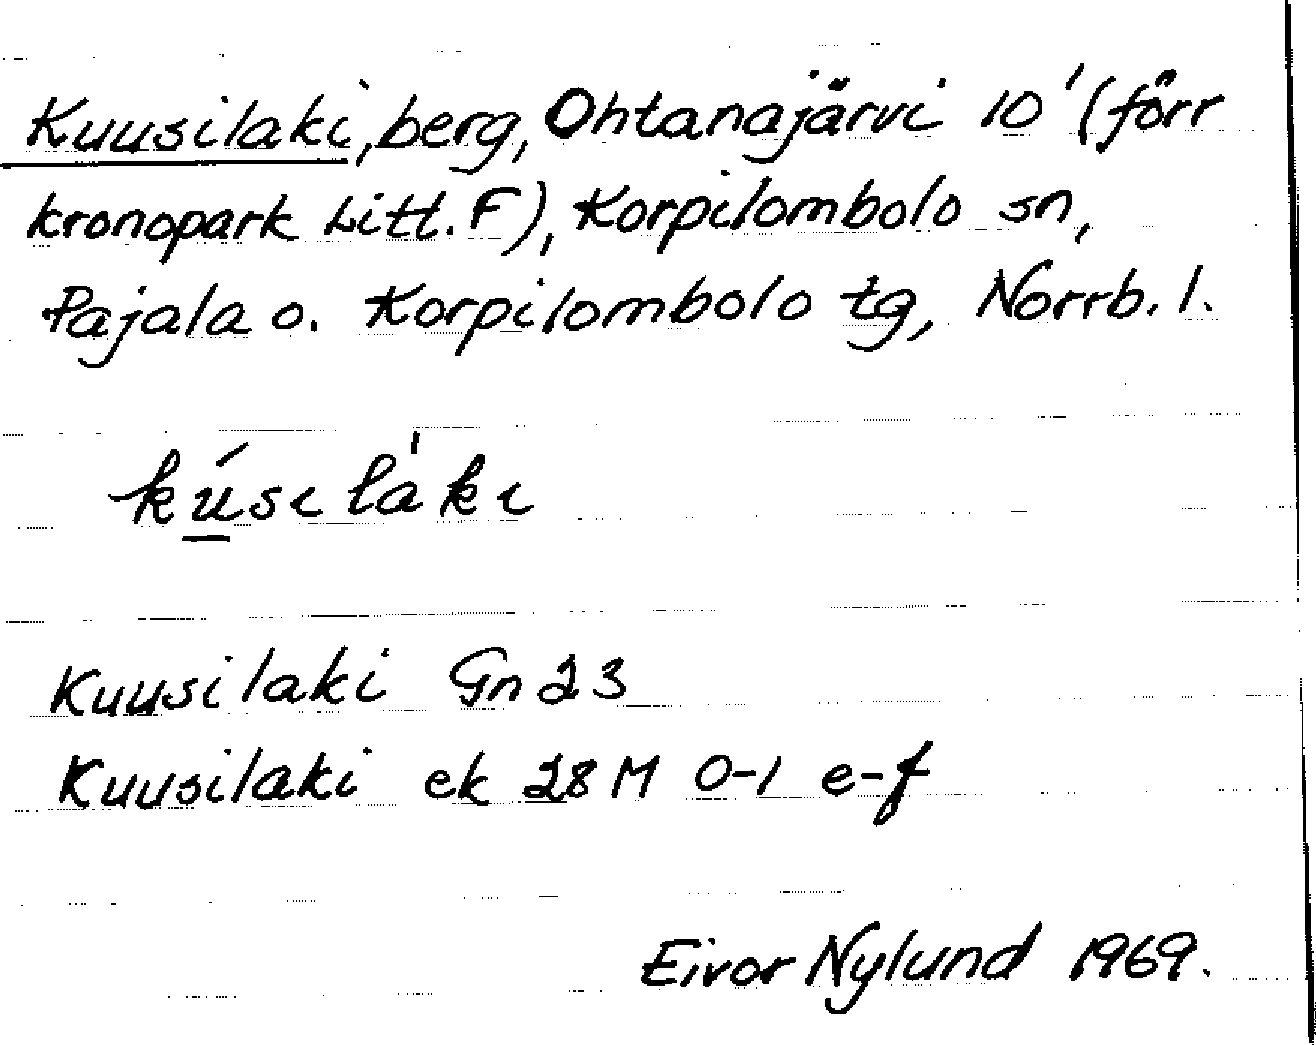 Kuusilaki, berg, Ohtanajärvi 10' (förr
kronopark Litt. F), Korpilombolo sn,
Pajala o. Korpilombolo tg, Norrb. l.
kú̱sɩ làkɩ
Kuusilaki Gn 23
Kuusilaki ek 28 M 0-1 e-f
Eivor Nylund 1969.